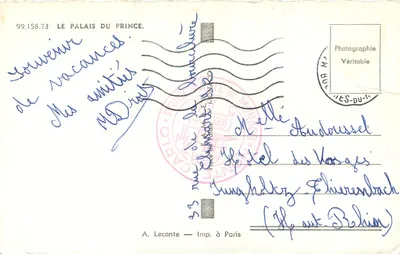 99.158.73 LE PALAIS DU PRINCE.
Souvenir
de vacances.
Mes amitiés
Photographie
Véritable
33 rue de la
Melle Audoussel
Hôtel des Vosges
Jungholtz-Thierenbach
(Haut-Rhin)
A. Leconte — Imp. à Paris